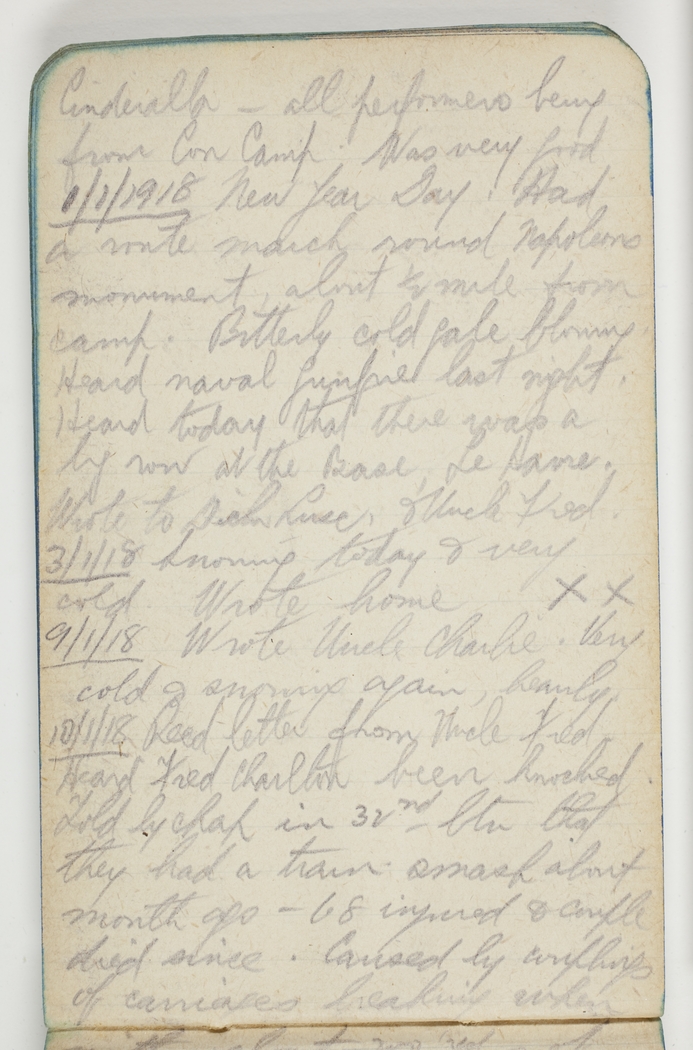 Cinderella – all performers being
from Con Camp. Was very good
1/1/1918 New Year Day. Had
a route march round Napoleons
monument, about ½ mile from
camp. Bitterly cold gale blowing.
Heard naval gunfire last night.
Heard today that there was a
big row at the Base, Le Havre.
Wrote to & Uncle Fred.
3/1/18 Snowing today & very
cold Wrote home X X
9/1/18 Wrote Uncle Charlie. Very
cold & snowing again, heavily.
10/1/18 Recd letter from Uncle Fred.
Heard Fred Charlton been knocked.
Told by chap in 32nd btn that
they had a train smash about
month ago – 68 injured & couple
died since. Caused by couplings
of carriages breaking when